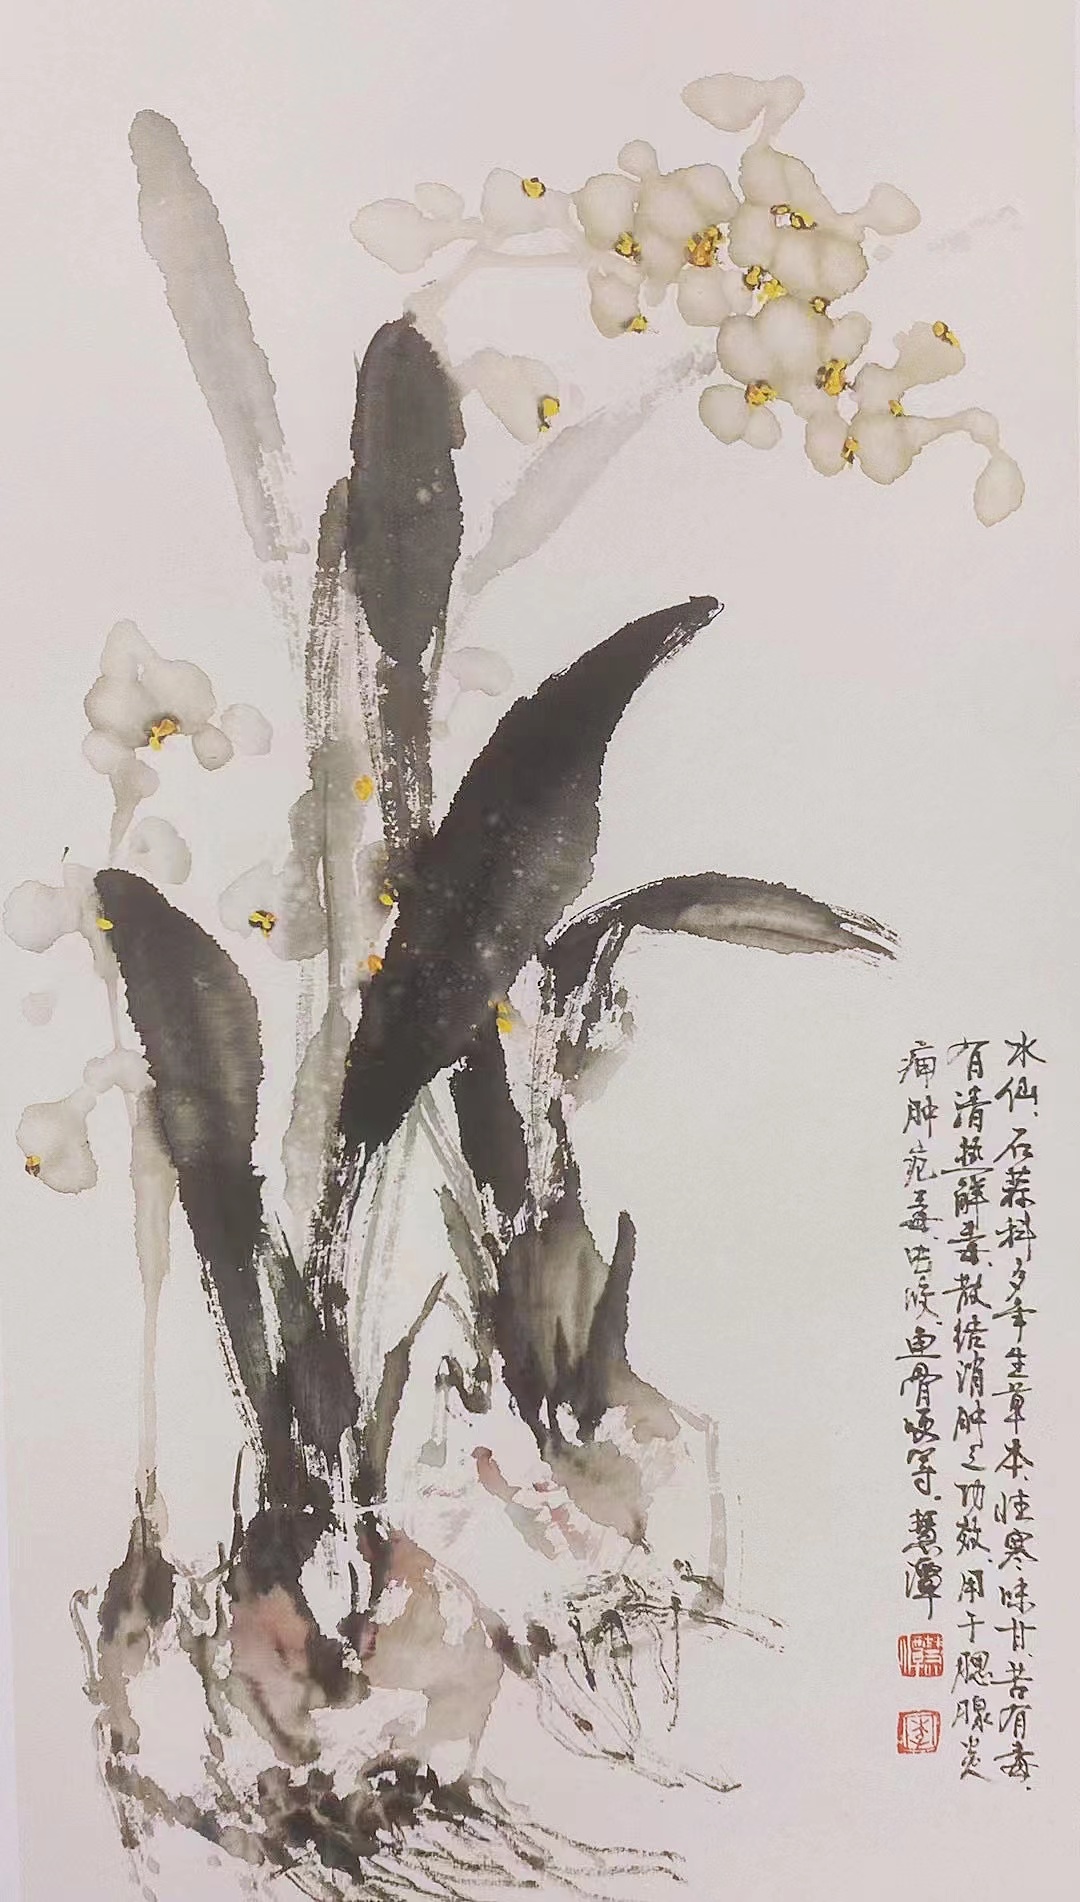 水仙、石蒜科多年生草本、性寒味甘、苦有毒、
有清热解毒、散结消肿之功效、用于腮腺炎
痈肿疮毒、虫咬、鱼骨哽等、慧潭
慧潭
李